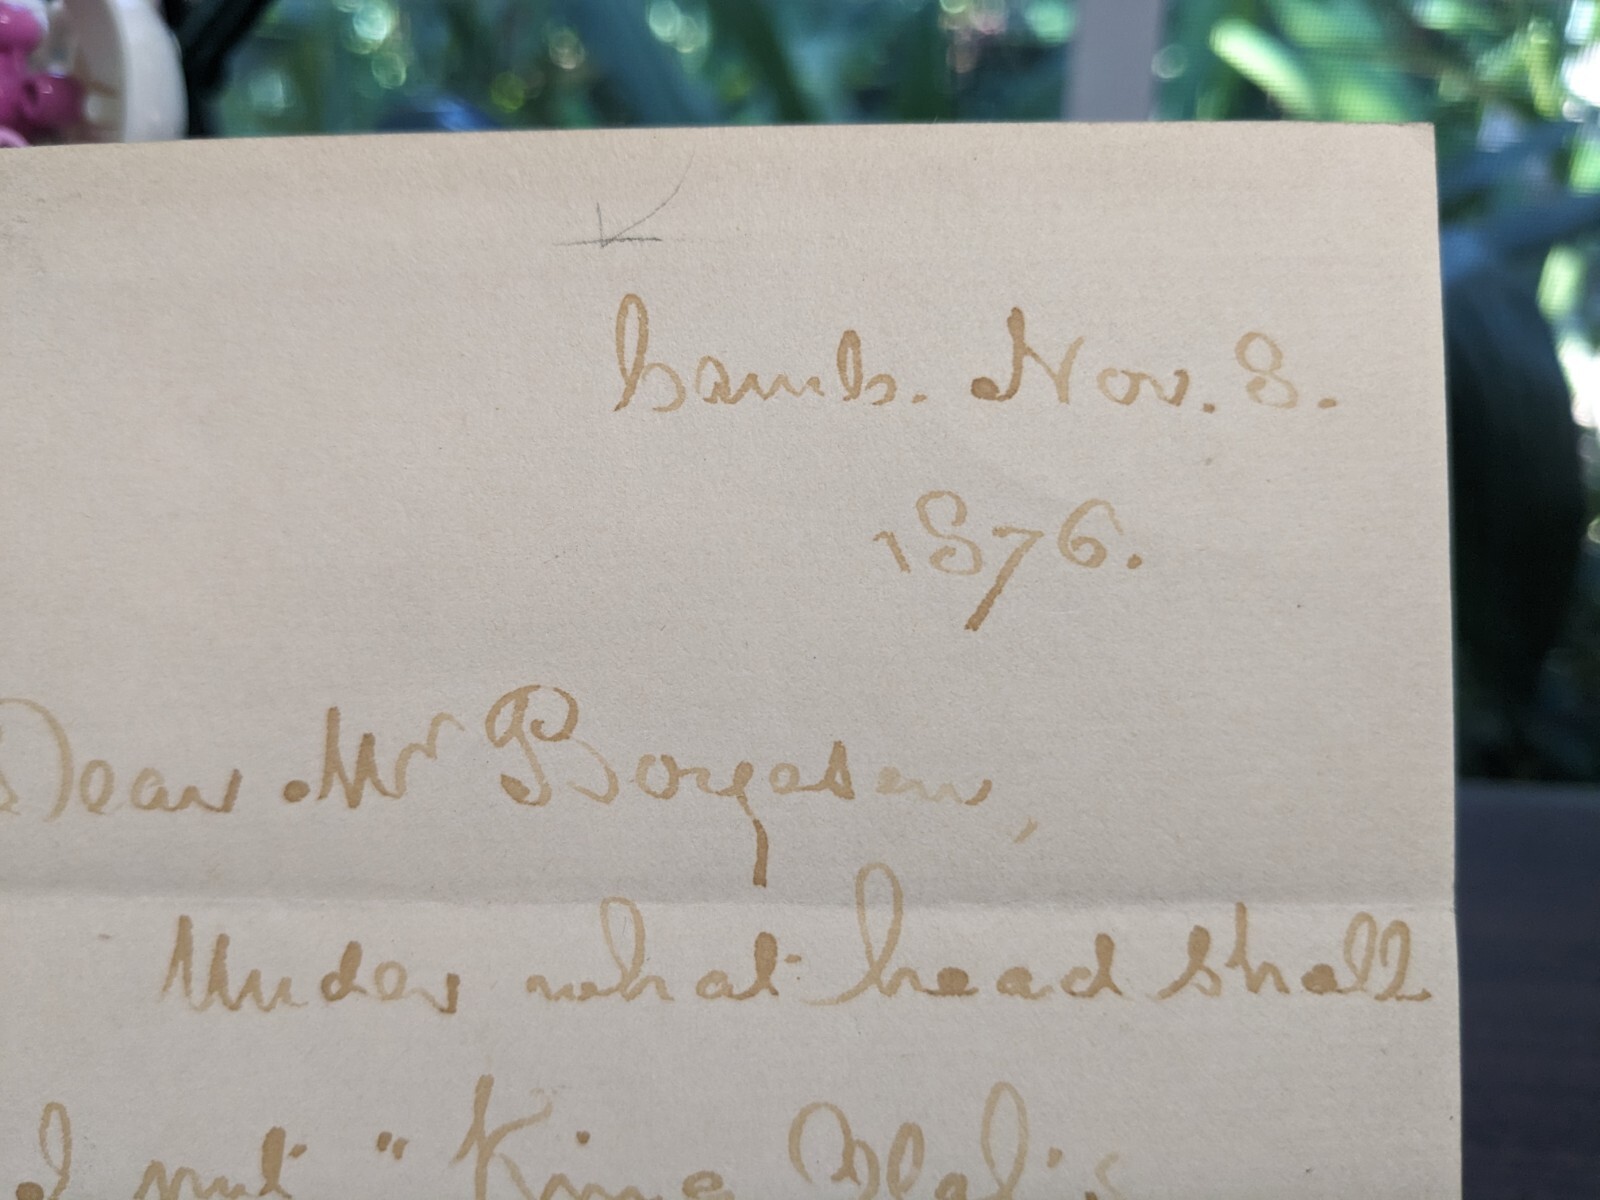 Camb. Nov. 8.
1876.
Dear Mr Boyesen,
Under what head shall
I put "King Olaf's